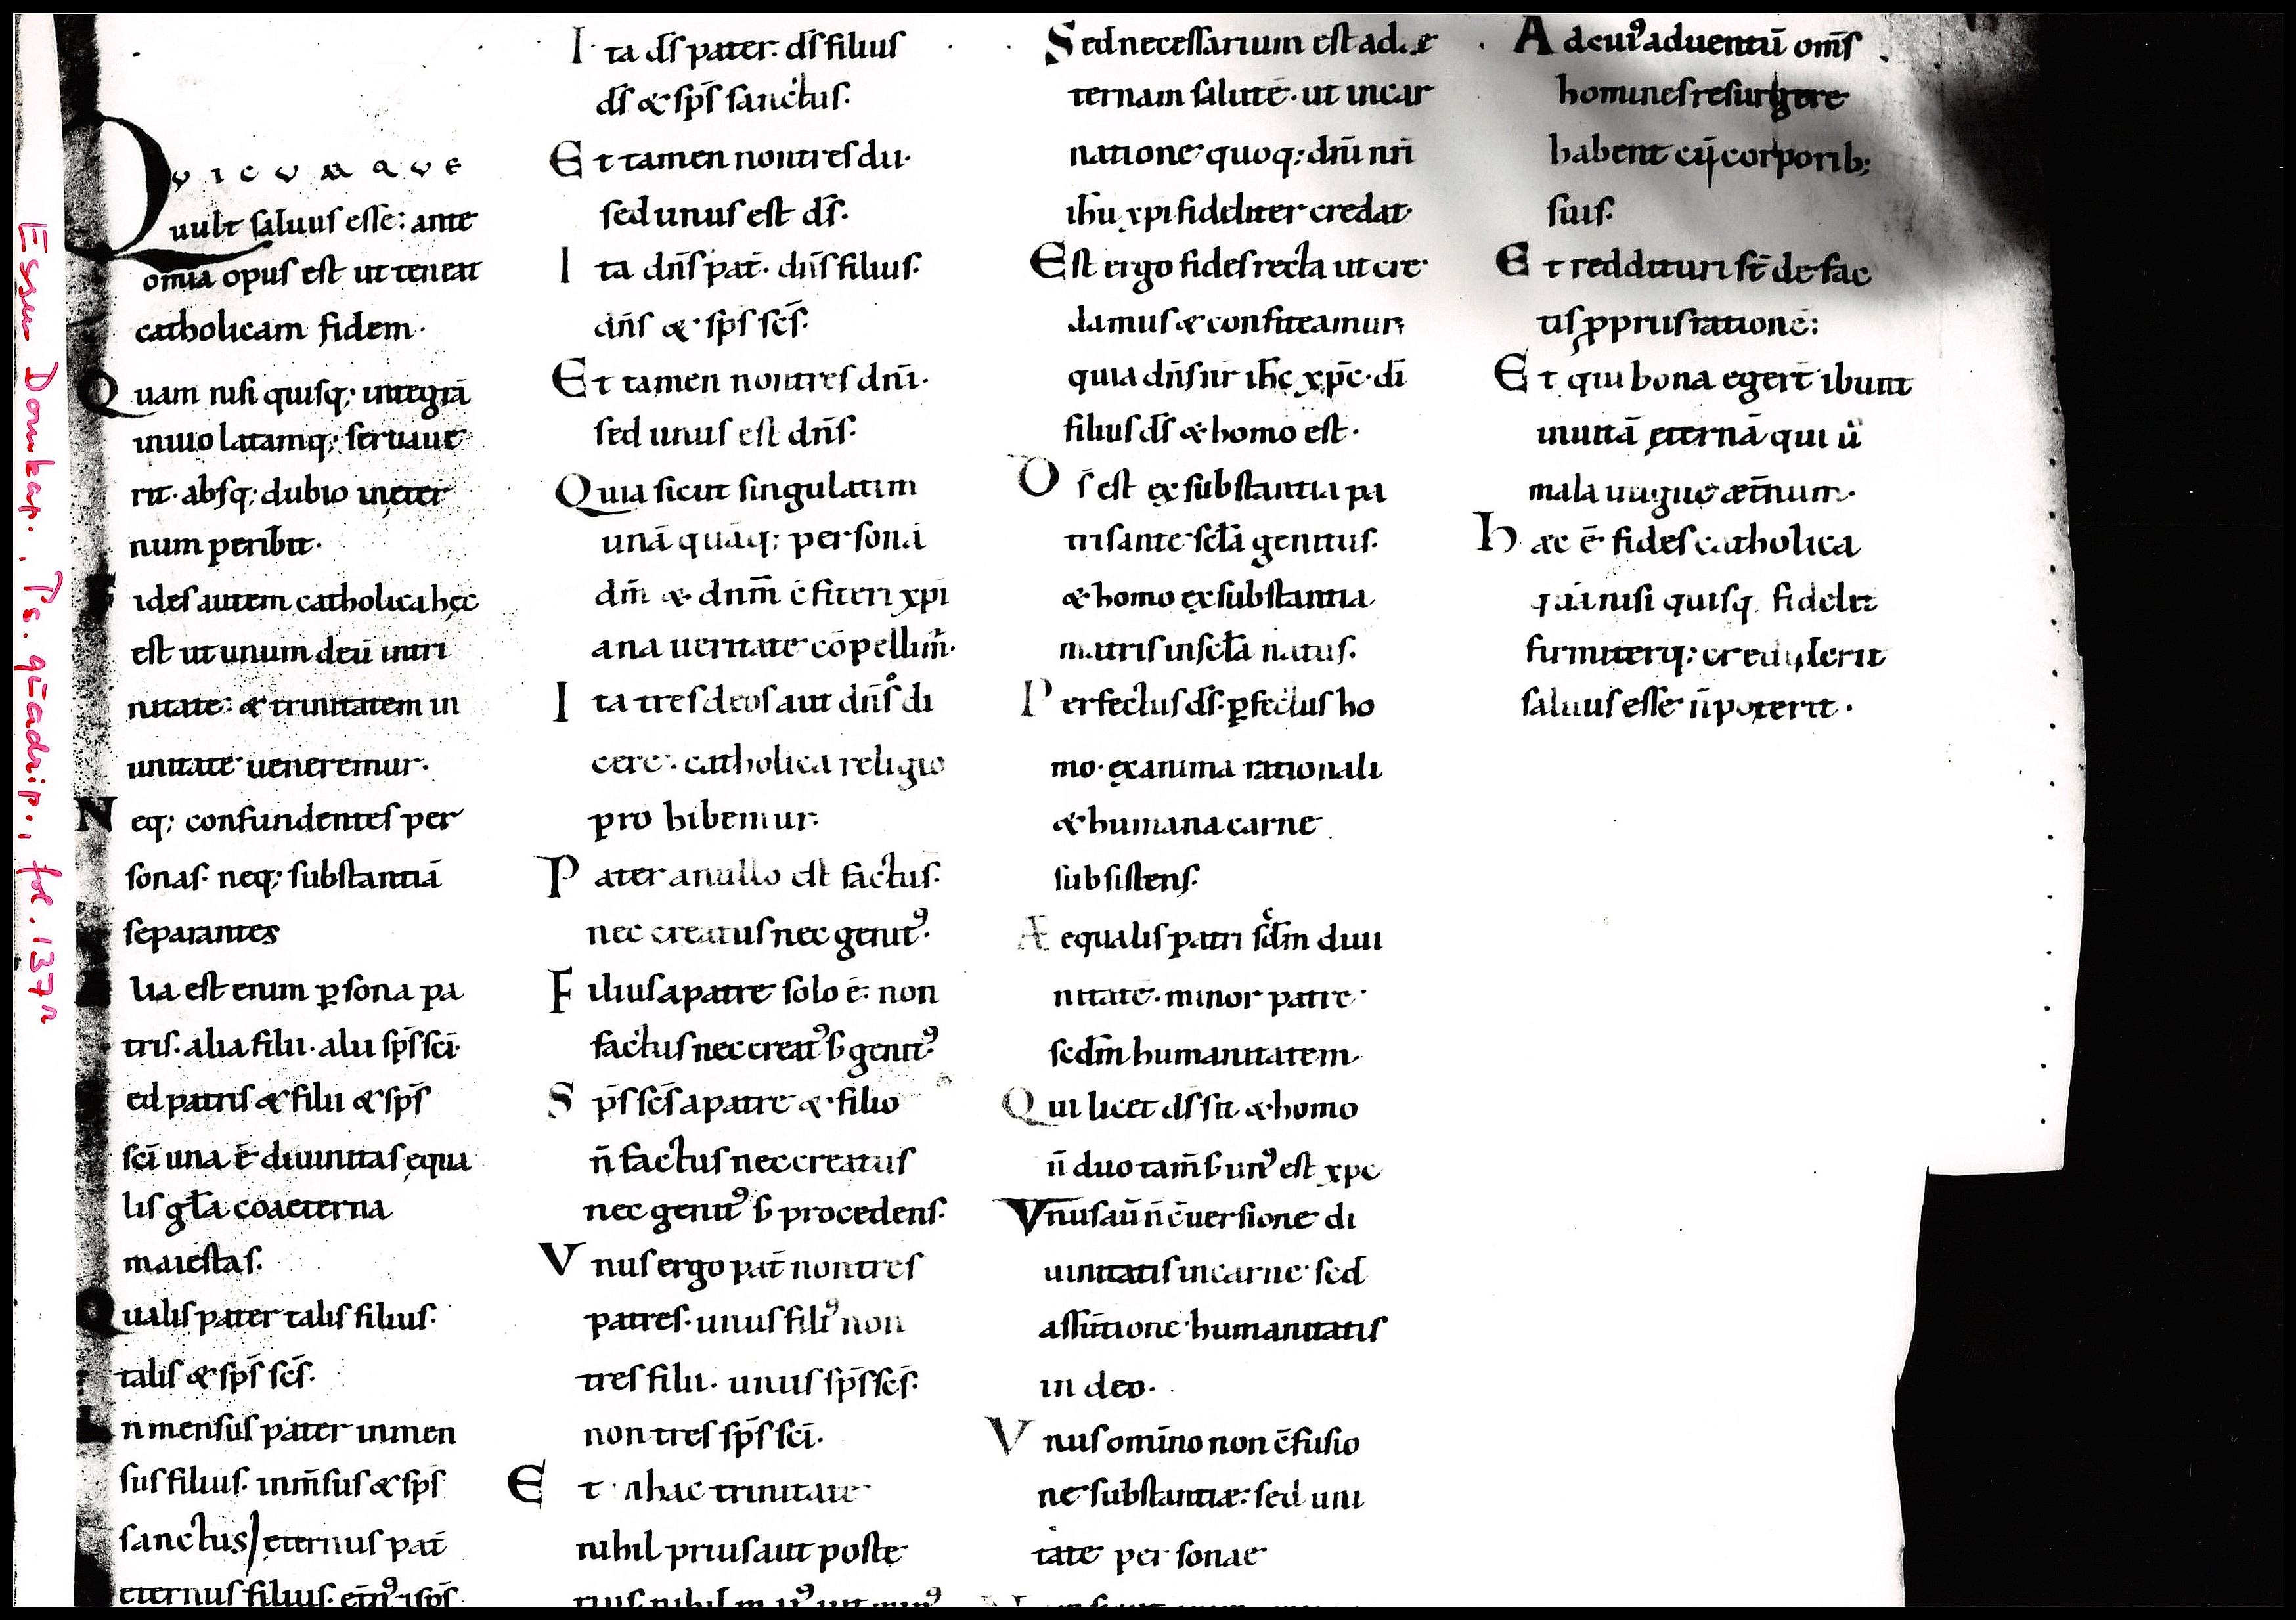 Essen Domkap., Ps. quadrip., fol. 137r
QVICVMQVE
uult saluus esse: ante
om̄ia opus est ut teneat
catholicam fidem·
Quam nisi quisq; integrā
inuiolatamq; seruaue
rit· absq; dubio in ęter
num peribit·
Fides autem catholica hęc
est ut unum deū in tri
nitate· & trinitatem in
unitate ueneremur·
Neq; confundentes per
sonas· neq; substantiā
separantes
lia est enim ꝑsona pa
tris· alia filii· alii sp̄s sc̄i·
ed patris & filii & sp̄s
sc̄i una ē diuinitas ęqua
lis gła coaeterna
maiestas·
Qualis pater talis filius·
talis & sp̄s sc̄s·
Inmensus pater inmen
sus filius· inm̄sus & sp̄s
sanctus/ eternus pat̄
eternus filius· et̄nꝰ & sp̄s
Ita ds̄ pater· ds̄ filius
ds̄ & sp̄s sanctus·
Et tamen non tres dii·
sed unus est ds̄·
Ita dn̄s pat̄· dn̄s filius·
dn̄s & sp̄s sc̄s·
Et tamen non tres dn̄i·
sed unus est dn̄s·
Quia sicut singulatim
unā quāq; personā
dm̄ & dnm̄ c̄fiteri xpi
ana ueritate cōpellim̄·
Ita tres deos aut dn̄os di
cere· catholica religio
prohibemur·
Pater a nullo est factus·
nec creatus nec genitꝰ·
Filius a patre solo ē· non
factus nec creatꝰ ƀ genitꝰ
Sp̄s sc̄s a patre & filio
n̄ factus nec creatus
nec genitꝰ ƀ procedens·
Vnus ergo pat̄ non tres
patres· unus filiꝰ non
tres filii· unus sp̄s sc̄s·
non tres sp̄s sc̄i·
Et in hac trinitate
nihil prius aut poste
rius nihil maiꝰ aut minꝰ
Sed necessarium est ad ę
ternam salutē· ut incar
natione quoq; dn̄i nr̄i
ih̄u xpi fideliter credat·
Est ergo fides recta ut cre
damus & confiteamur;
quia dn̄s nr̄ ih̄c xp̄c· dī
filius ds̄ & homo est·
Ds̄ est ex substantia pa
tris ante sc̄la genitus·
& homo ex substantia
matris in sc̄la natus·
Perfectus ds̄· ꝑfectus ho
mo· ex anima rationali
& humana carne
subsistens·
Æequalis patri sc̄dm diui
nitatē· minor patre
sc̄dm humanitatem·
Qui licet ds̄ sit & homo
n̄ duo tam̄ ƀ unꝰ est xpc
Vnus aū n̄ c̄uersione di
uinitatis in carne· sed
assūtione humanitatis
in deo·
Vnus om̄ino non c̄fusio
ne substantiæ· sed uni
tate personae
Ad cuiꝰ aduentū om̄s
homines resurgere
habent cū corporib;
suis·
Et reddituri st̄ de fac
tis ꝓpriis rationē:
Et qui bona egert̄ ibunt
in uitā ęternā qui ū
mala in ignē æt̄num·
Haec ē fides catholica
quā nisi quisq; fidelit̄
firmiterq; crediderit
saluus esse n̄ poterit·